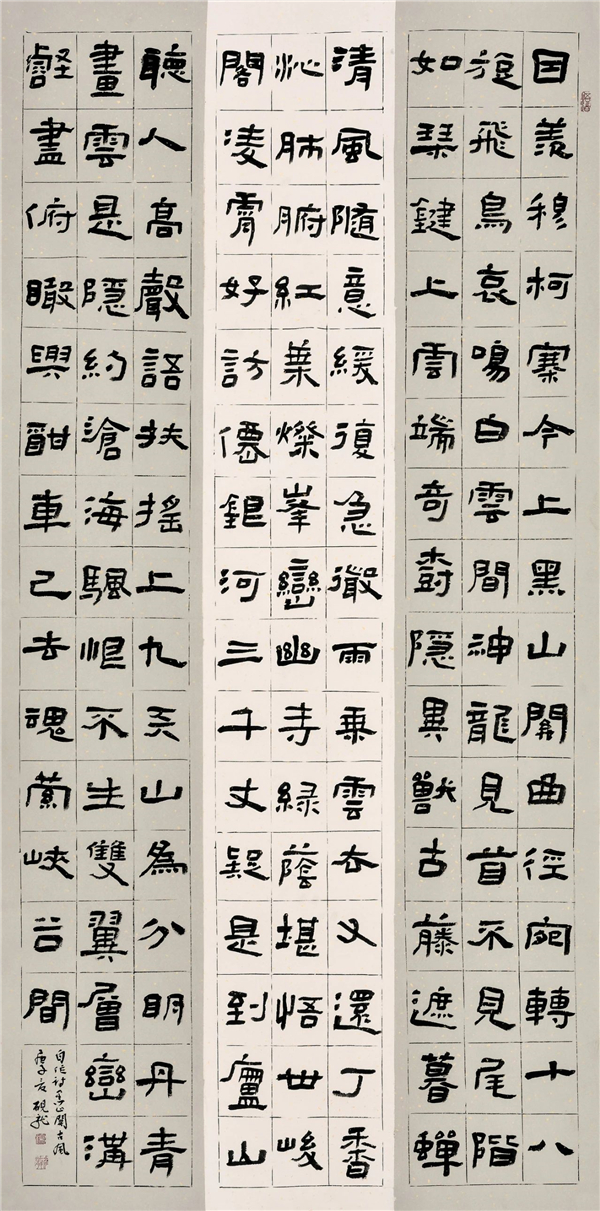 因羨穆柯寨今上黑山關曲徑宛轉十八
旋飛鳥哀鳴白雲間神龍見首不見尾階
如琴鍵上雲端奇樹隱異獸古藤遮暮蟬
清風隨意緩復急微雨乘雲去又還丁香
沁肺腑紅葉燦峯巒幽寺綠蔭堪悟世峻
閣凌霄好訪僊銀河三千丈疑是到廬山
聽人高聲語扶搖上九天山為分明丹青
畫雲是隱約滄海颿恨不生雙翼層巒溝
壑盡俯瞰興酣車已去魂縈峽谷間
自作詩黑山關古風
庚子夏硯龍